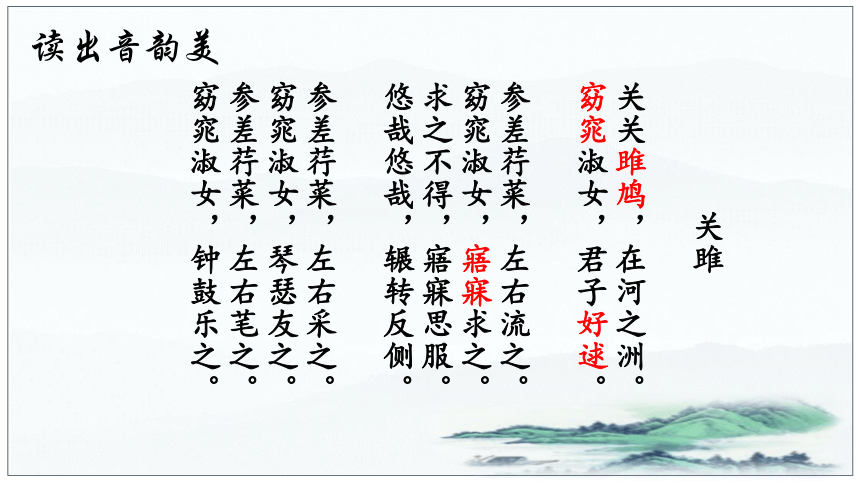 读出音韵美
关雎
关关雎鸠，在河之洲。
窈窕淑女，君子好逑。
参差荇菜，左右流之。
窈窕淑女，寤寐求之。
求之不得，寤寐思服。
悠哉悠哉，辗转反侧。
参差荇菜，左右采之。
窈窕淑女，琴瑟友之。
参差荇菜，左右芼之。
窈窕淑女，钟鼓乐之。